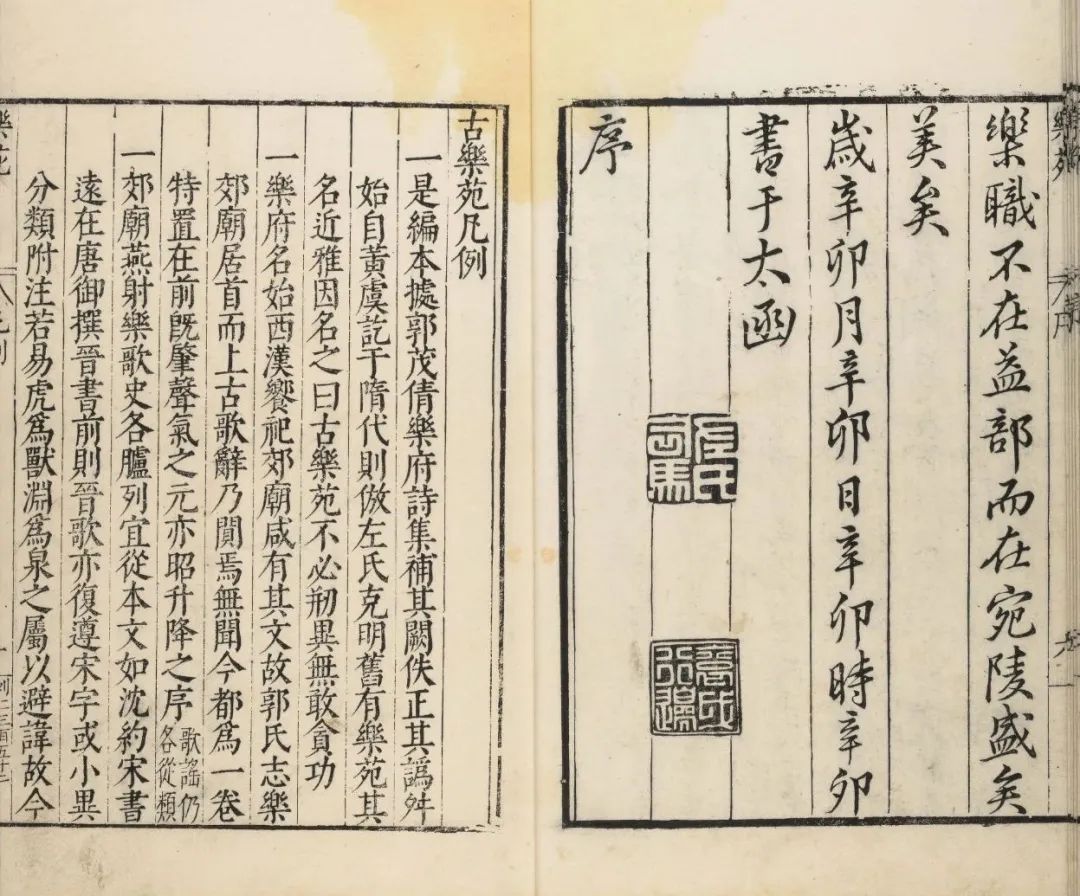 樂職不在益部而在宛陵盛矣
美矣
歲辛卯月辛卯日辛卯時辛卯
書于太函
左氏司馬
序
古樂苑凡例
一是編本據郭茂倩樂府詩集補其闕佚正其譌舛
始自黃虞訖于隋代則倣左氏克明舊有樂苑其
名近雅因名之曰古樂苑不必剏異無敢貪功
一樂府名始西漢饗祀郊廟咸有其文故郭氏志樂
郊廟居首而上古歌辭乃閴焉無聞今都為一卷
特置在前旣肇聲氣之元亦昭升降之序歌謠仍各從類
一郊廟燕射樂歌史各臚列宜從本文如沈約宋書
遠在唐御撰晉書前則晉歌亦復遵宋字或小異
分類附注若易虎爲獸淵爲泉之屬以避諱故今